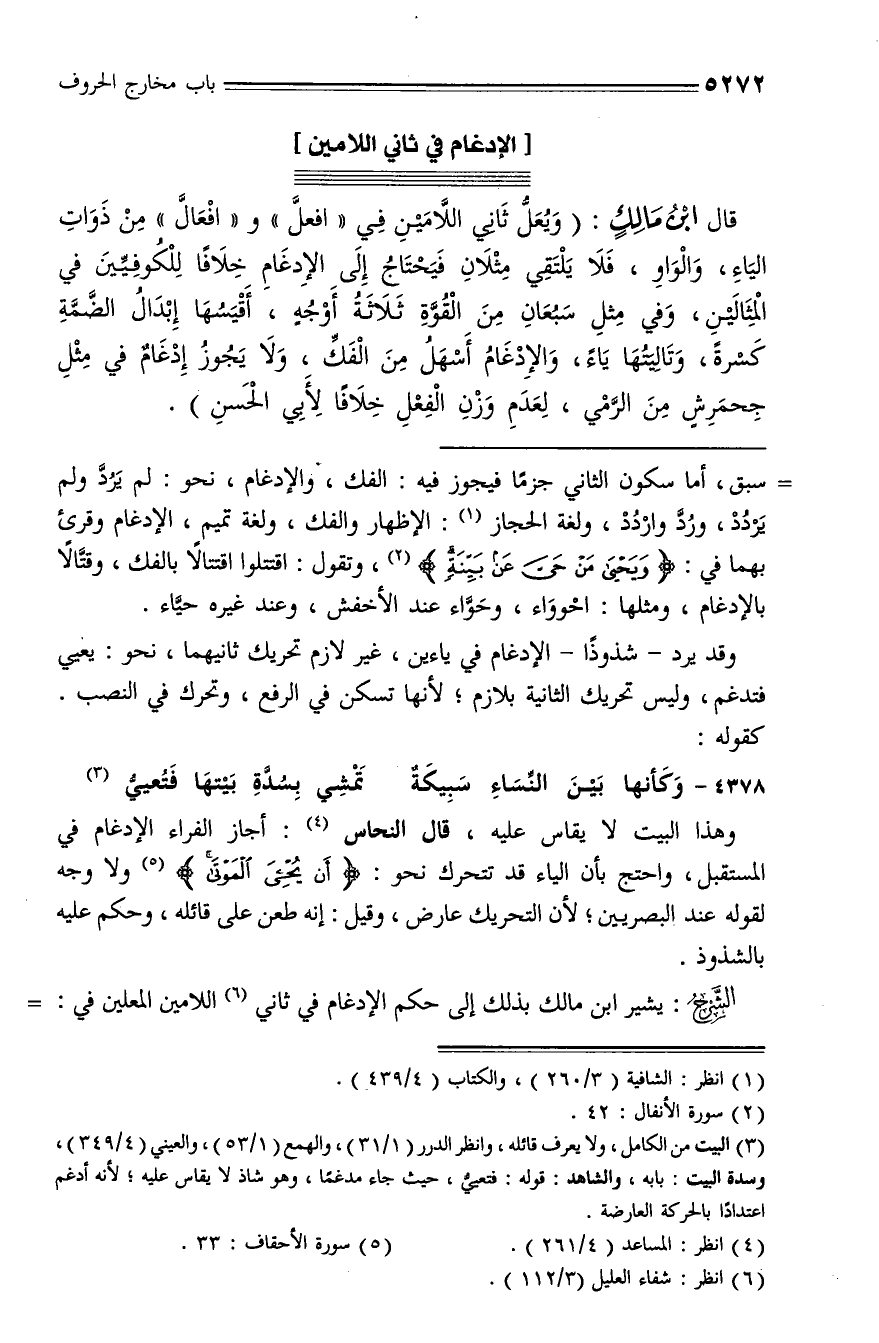 ٥٢٧٢ باب مخارج الحروف
[ الإدغام في ثاني اللامين ]
قال ابْنُ مَالِكٍ : ( وَيُعَلُّ ثَانِي اللَّامَيْنِ فِي « افعلَّ » و « افْعَالَّ » مِنْ ذَوَاتِ
اليَاءِ ، وَالْوَاوِ ، فَلَا يَلْتَقِي مِثْلَانِ فَيَحْتَاجُ إِلَى الإِدغَامِ خِلَافًا لِلْكُوفِيِّينَ في
الْمِثَالَيْنِ ، وَفي مِثلِ سَبُعَانِ مِنَ الْقُوَّةِ ثَلَاثَةُ أَوْجُهٍ ، أَقْيَسُهَا إِبْدَالُ الضَّمَّةِ
كَسْرةً ، وَتَالِيَتُهَا يَاءً ، وَالإِدْغَامُ أَسْهَلُ مِنَ الْفَكِّ ، وَلَا يَجُوزُ إِدْغَامٌ في مِثْلِ
جِحمَرِشٍ مِنَ الرَّمْيِ ، لِعَدَمِ وَزْنِ الْفِعْلِ خِلَافًا لِأَبِي الْحَسنِ ) .
= سبق ، أما سكون الثاني جزمًا فيجوز فيه : الفك ، والإدغام ، نحو : لم يَرُدَّ ولم
يَرْدُدْ ، ورُدَّ وارْدُدْ ، ولغة الحجاز (١) : الإظهار والفك ، ولغة تميم ، الإدغام وقرئ
بهما في : ﴿ وَيَحْيَىٰ مَنْ حَيَّ عَنۢ بَيِّنَةٍ ﴾ (٢) ، وتقول : اقتتلوا اقتتالًا بالفك ، وقتَّالًا
بالإدغام ، ومثلها : احْووَاء ، وحَوَّاء عند الأخفش ، وعند غيره حيَّاء .
وقد يرد – شذوذًا – الإدغام في ياءين ، غير لازم تحريك ثانيهما ، نحو : يعيي
فتدغم ، وليس تحريك الثانية بلازم ؛ لأنها تسكن في الرفع ، وتحرك في النصب .
كقوله :
٤٣٧٨ – وَكَأنها بَيْنَ النِّسَاءِ سَبِيكَةٌ تَمْشِي بِسُدَّةِ بَيْتِهَا فَتُعييُّ (٣)
وهذا البيت لا يقاس عليه ، قال النحاس (٤) : أجاز الفراء الإدغام في
المستقبل ، واحتج بأن الياء قد تتحرك نحو : ﴿ أَن يُحْـِۧيَ ٱلْمَوْتَىٰ ﴾ (٥) ولا وجه
لقوله عند البصريين ؛ لأن التحريك عارض ، وقيل : إنه طعن على قائله ، وحكم عليه
بالشذوذ .
الشَّرْحُ : يشير ابن مالك بذلك إلى حكم الإدغام في ثاني (٦) اللامين المعلين في : =
(١) انظر : الشافية ( ٢٦٠/٣ ) ، والكتاب ( ٤٣٩/٤ ) .
(٢) سورة الأنفال : ٤٢ .
(٣) البيت من الكامل ، ولا يعرف قائله ، وانظر الدرر ( ٣١/١ ) ، والهمع ( ٥٣/١ ) ، والعيني ( ٣٤٩/٤ ) ،
وسدة البيت : بابه ، والشاهد : قوله : فتعييُّ ، حيث جاء مدغمًا ، وهو شاذ لا يقاس عليه ؛ لأنه أدغم
اعتدادًا بالحركة العارضة .
(٤) انظر : المساعد ( ٢٦١/٤ ) . (٥) سورة الأحقاف : ٣٣ .
(٦) انظر : شفاء العليل (١١٢/٣ ) .